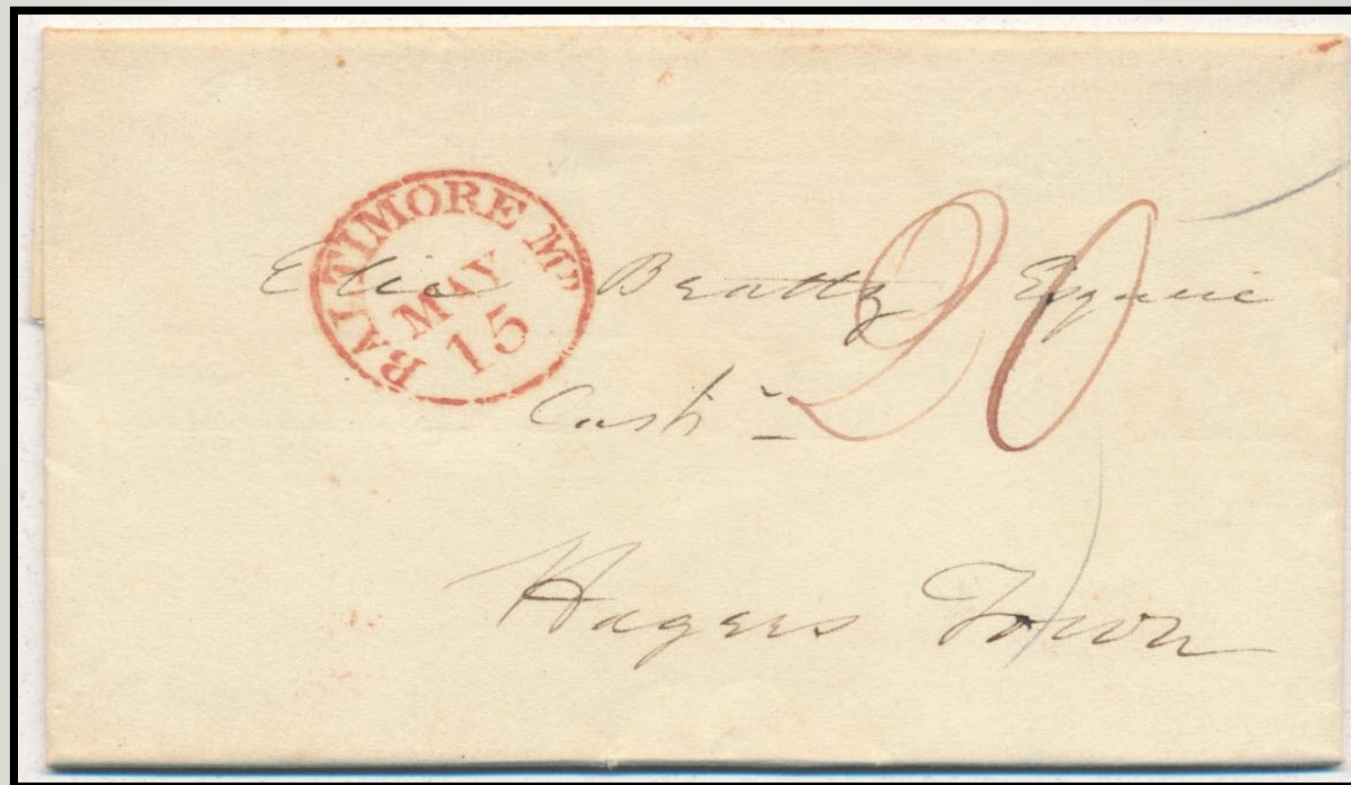 BALTIMORE MD
MAY
15
Elie Beatty Esquire
Cashr
20
Hagers Town